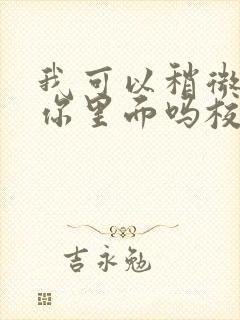 我可以稍微
你里而吗板
吉永勉